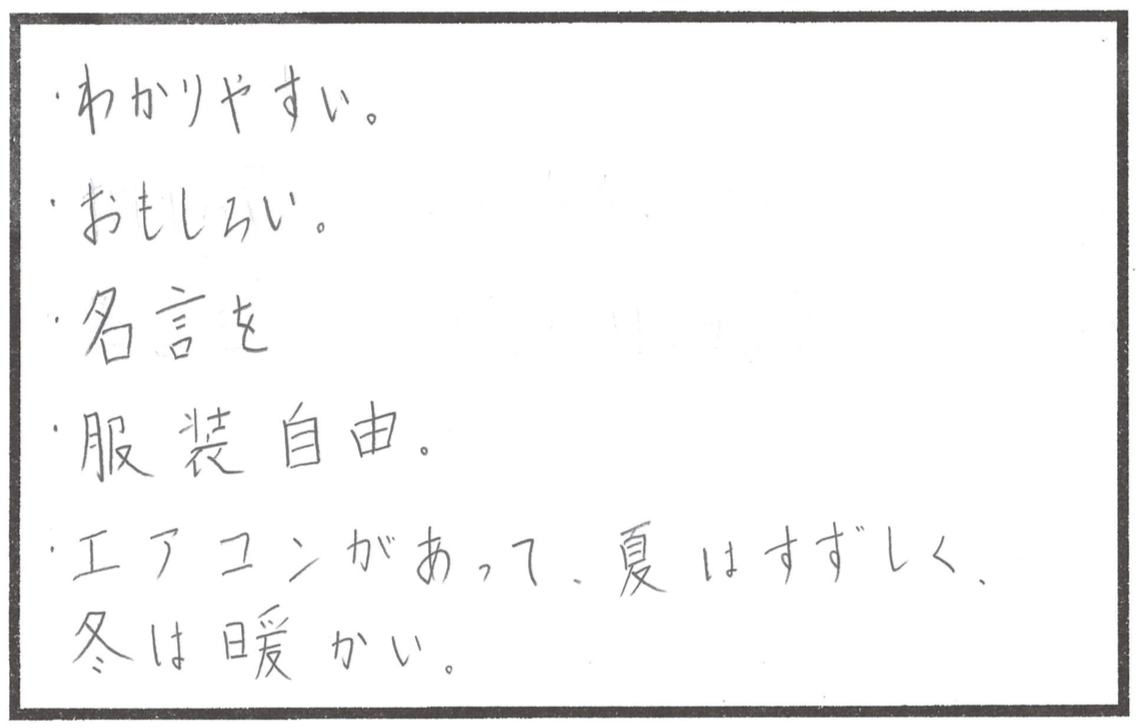 ・わかりやすい。
・おもしろい。
・名言を
・服装自由。
・エアコンがあって、夏はすずしく、
冬は暖かい。